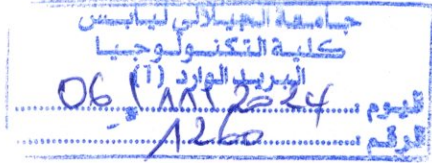 جامعة الجيلالي ليابس
كلية التكنولوجيا
البريد الوارد (1)
اليوم : 06 / 11 / 2024
الرقم : 1260